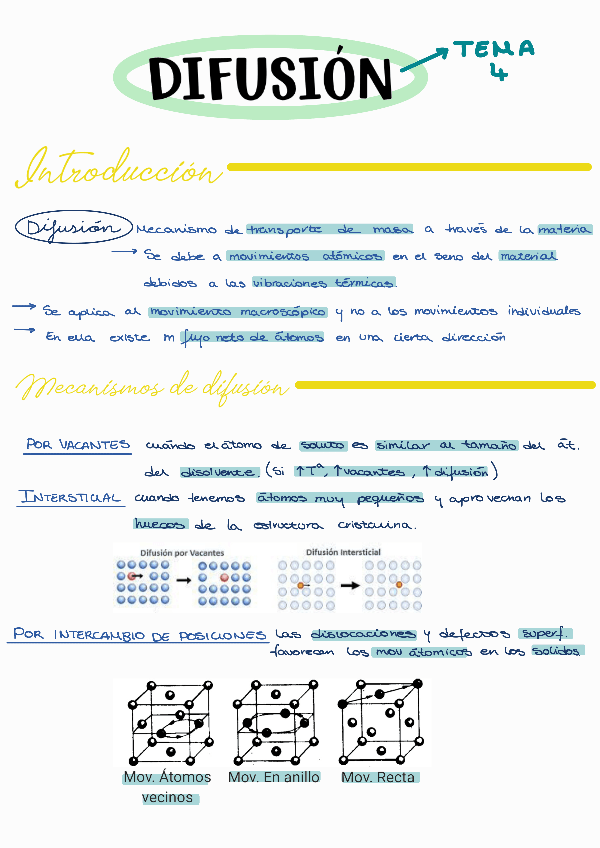 DIFUSIÓN
TEMA
4
Introducción
Difusión Mecanismo de transporte de masa a través de la materia
Se debe a movimientos atómicos en el seno del material
debidos a las vibraciones térmicas.
Se aplica al movimiento macroscópico y no a los movimientos individuales
En ella existe m flujo neto de átomos en una cierta dirección
Mecanismos de difusión
POR VACANTES cuándo el átomo de soluto es similar al tamaño del át.
del disolvente. (Si ↑Tª, ↑vacantes, ↑difusión)
INTERSTICIAL cuando tenemos átomos muy pequeños y aprovechan los
huecos de la estructura cristalina.
Difusión por Vacantes
Difusión Intersticial
POR INTERCAMBIO DE POSICIONES Las dislocaciones y defectos superf.
favorecen los mov átomicos en los solidos.
Mov. Átomos
vecinos
Mov. En anillo
Mov. Recta